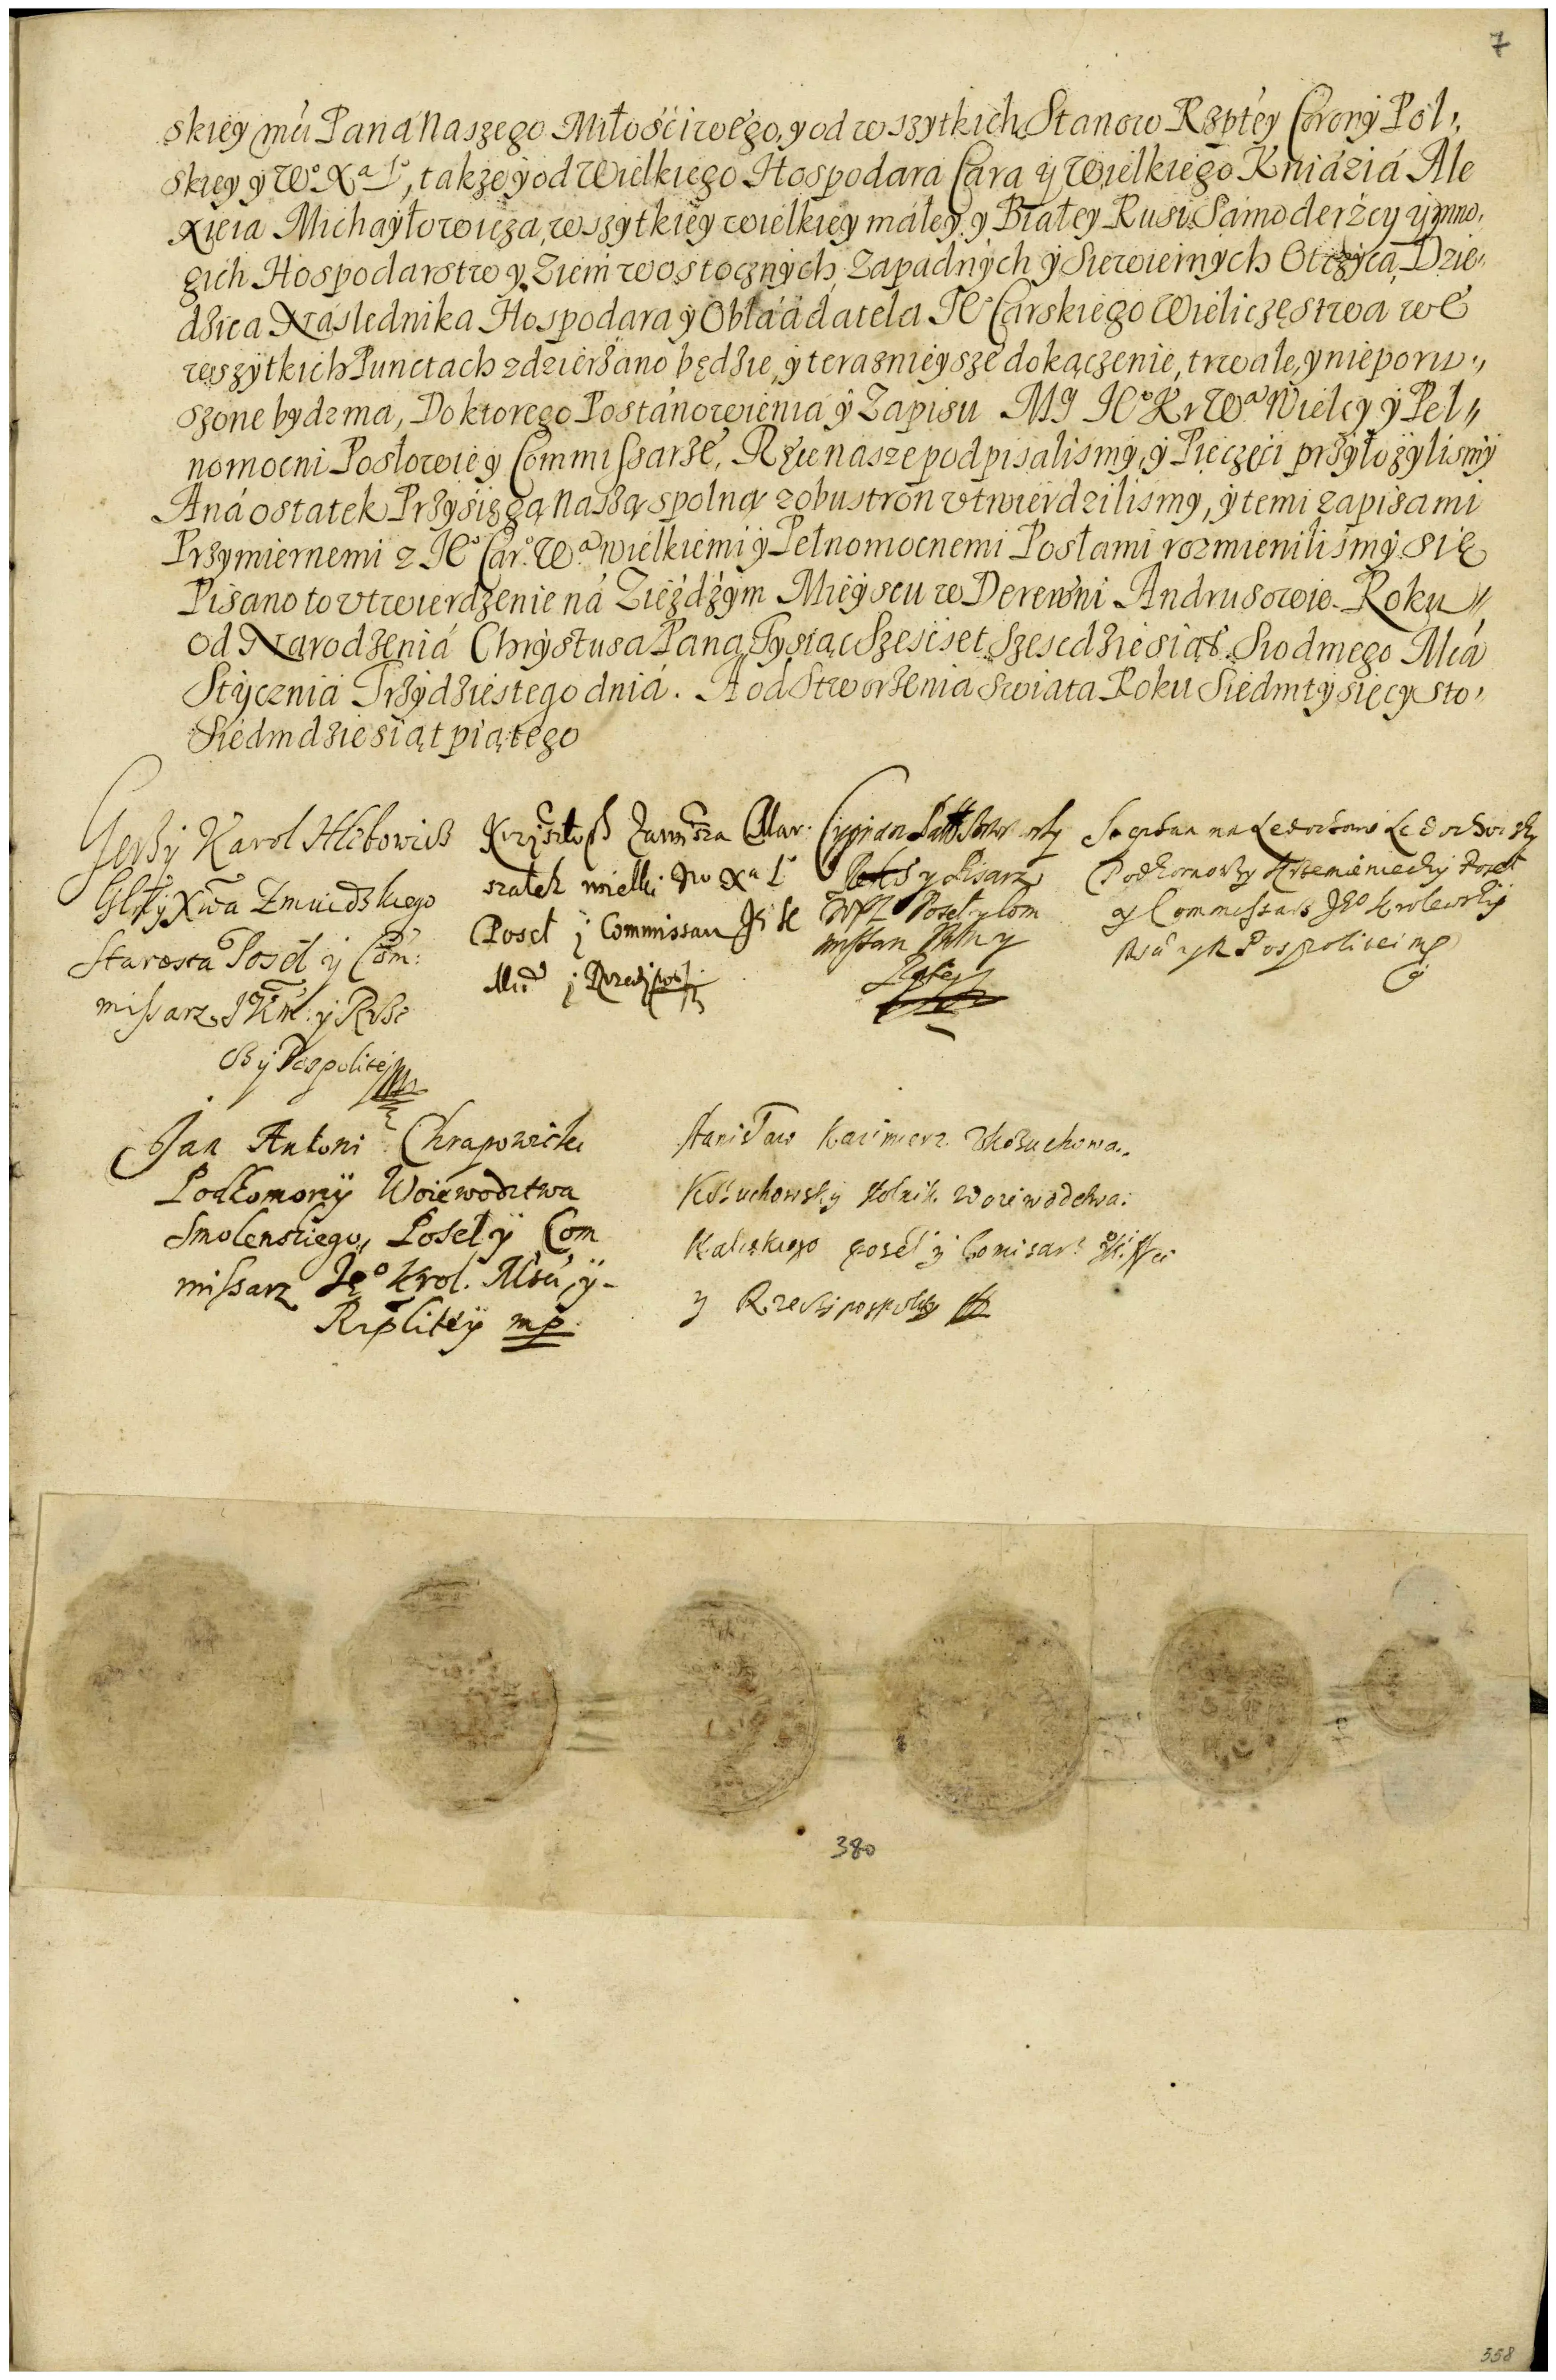 7
skiey mu Paná Naszego Miłościwego, y od wszytkich Stanow Rzptey Corony Pol,,
skiey y Wo Xa Lo, także y od Wielkiego Hospodara Cara y Wielkiego Kniáziá Ale
xieia Michayłowicza, wszytkiey wielkiey máłey y Białey Rusi Sámoderżcy y mno,
gich Hospodarstw y Ziem wostocznych, Zapadnych y Siewiernych Otczyca, Dzie,,
dzica Následnika Hospodara y Obłaádatela Ie Carskiego Wieliczęstwa we
wszytkich Punctach zdzierżano będzie, y teraznieysze dokączenie, trwałe, y nieporu,,
szone bydz ma, Do ktorego Postánowienia y Zapisu MY Ieo Kr Wa Wielcy y Peł,,
nomocni Posłowie y Commissarze, Ręce nasze podpisalismy, y Pieczęci przyłożylismy
A ná ostatek Przysięgą Naszą spolną z obu stron vtwierdzilismy, y temi zapisami
Przymiernemi z Ieo Caro. Wa. wielkiemi y Pełnomocnemi Posłami rozmienilismy się
Pisano to vtwierdzenie ná Ziezdzym Mieyscu w Derewni Andrusowie. Roku,,
od Narodzeniá Chrystusa Pana Tysiąc Szescset Szescdziesiąt Siodmego Mca
Stycznia Trzydziestego dniá. A od Stworzenia Swiata Roku Siedm tysięcy sto,
Siedmdziesiąt piątego
Jerzy Karol Hlebowicz
Glny Xwa Zmuidzkiego
Starosta Poseł y Com:
missarz JKM: y Rze
czy Pospolitej
Krzysztoph Zawisza Mar.
szałek wielki Wo Xa Lo
Poseł j Commissarz JK
Mci j Rzeczypos.
Cyprian Brzostowsky
y Pisarz
WXL Poseł y Com
missarz
Rzptey
Stephan na Ledochowie Ledochowsky
Podkomorzy Krzemieniecky Poseł
y Commissarz Jeo Krolewskiy
Msci y R Pospolitei mp
Jan Antoni Chrapowicki
Podkomorzy Woiewodztwa
Smolenskiego, Poseł y Com
missarz Jeo Krol. Mści y-
Rzplitey mp.
Stanisław Kazimierz z Kożuchowa..
Kożuchowsky stolnik Woiewodztwa:
Kaliskiego poseł y Comisarz
y Rzeczypospolitey
380
358